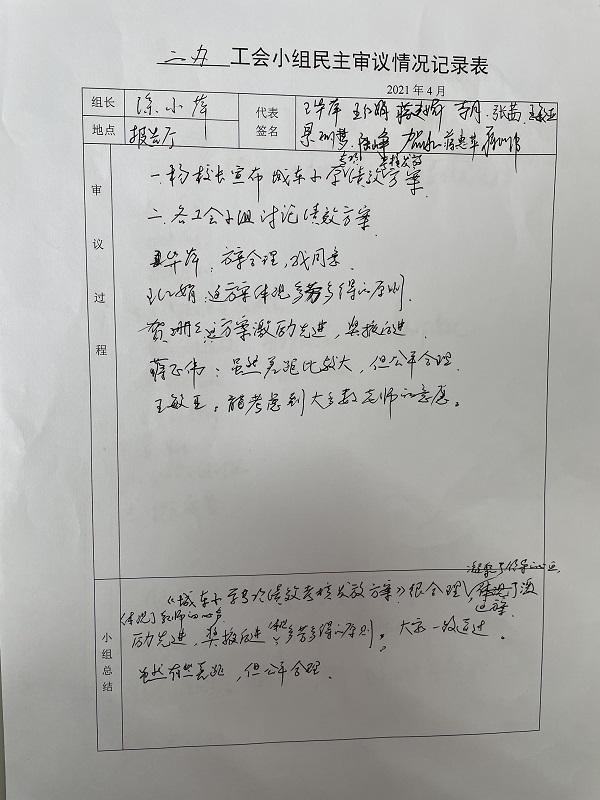 二办 工会小组民主审议情况记录表
2021年4月
组长 徐小萍 代表签名 王华萍 李丹 张茜
地点 报告厅
审议过程
一.杨校长宣布城东小学专项绩效考核发放方案
二.各工会小组讨论绩效方案
王华萍:方案合理,我同意.
娟:这方案体现多劳多得的原则.
贺珊:这方案激励先进,奖掖后进.
蒋正伟:虽然差距比较大,但公平合理.
王敏亚:能考虑到大多数老师的意愿。
小组总结
《城东小学专项绩效考核发放方案》很合理,体现了激
励先进,奖掖后进,体现多劳多得的原则。大家一致通过.
虽然有些差距,但公平合理.